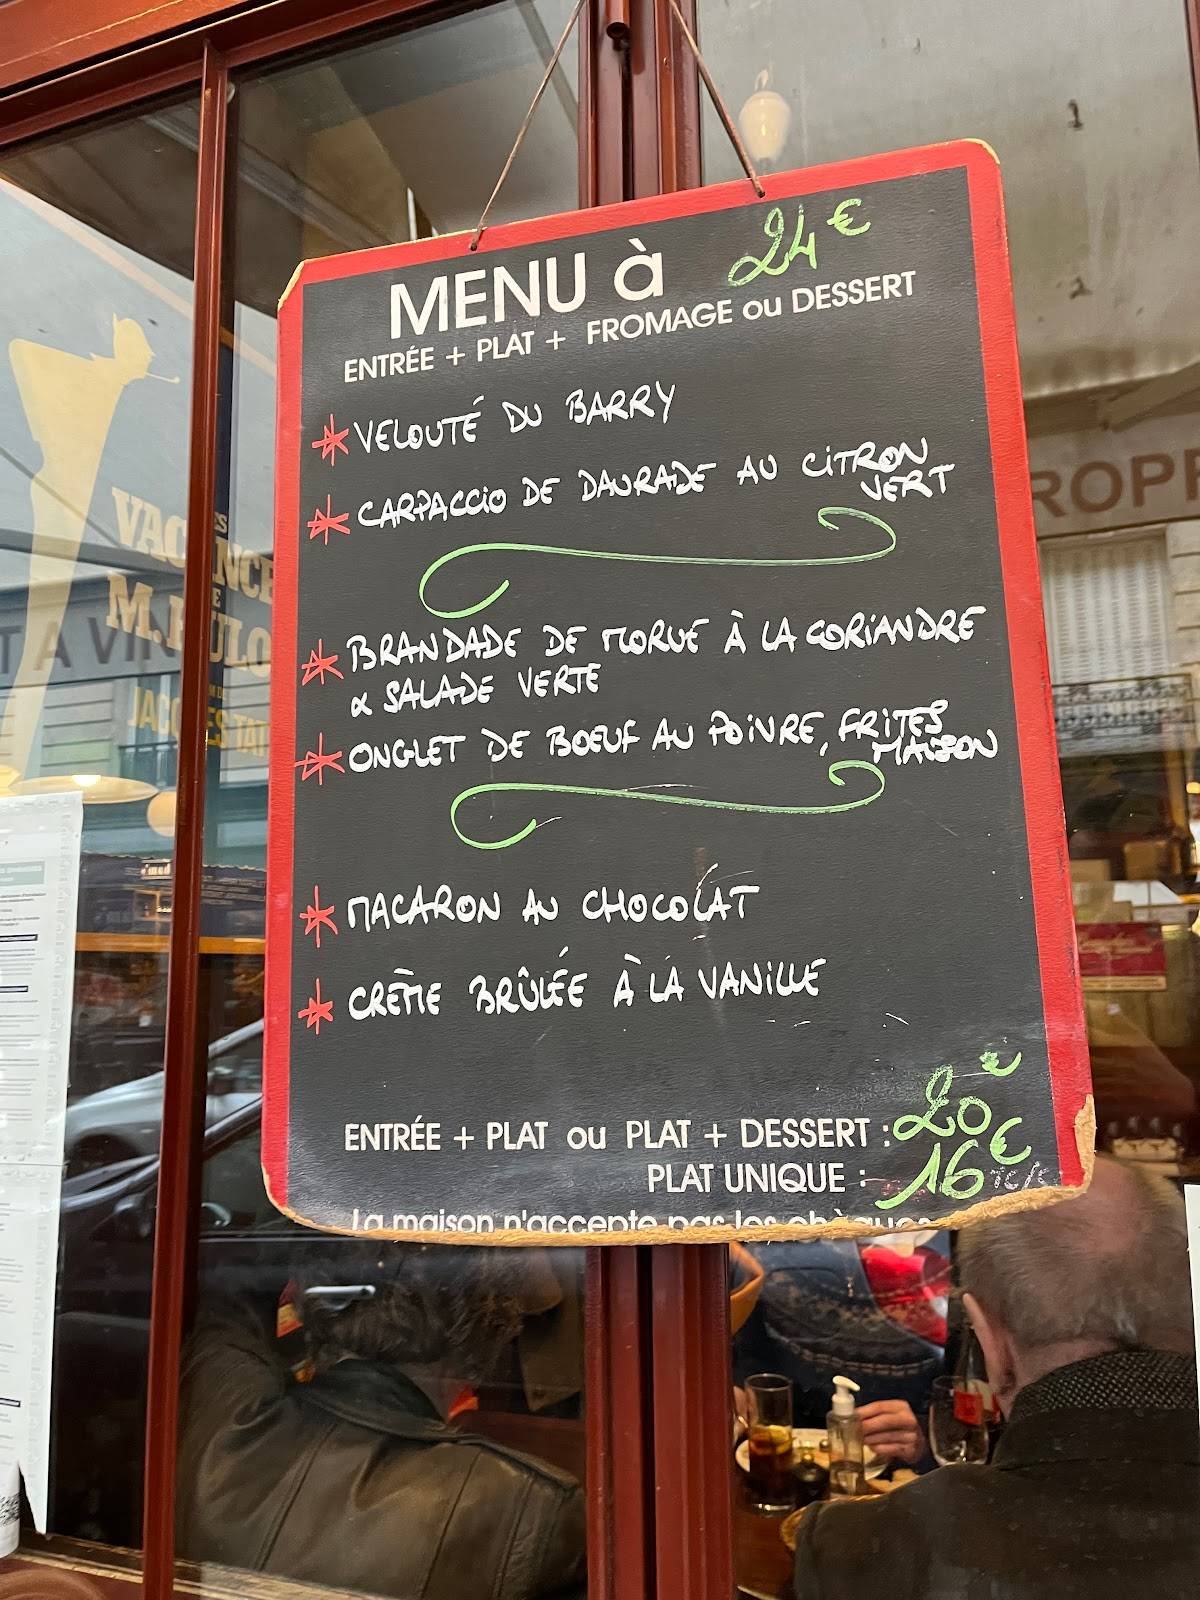 MENU à 24€
ENTRÉE + PLAT + FROMAGE ou DESSERT
* VELOUTÉ DU BARRY
* CARPACCIO DE DAURADE AU CITRON
VERT
* BRANDADE DE MORUE À LA CORIANDRE
& SALADE VERTE
* ONGLET DE BOEUF AU POIVRE, FRITES
MAISON
* MACARON AU CHOCOLAT
* CRÈME BRÛLÉE À LA VANILLE
ENTRÉE + PLAT ou PLAT + DESSERT : 20€
PLAT UNIQUE : 16€
La maison n'accepte pas les chèques
VACANCE
DE
M. HULO
JACQUES TATI
T A VIN
ROPR